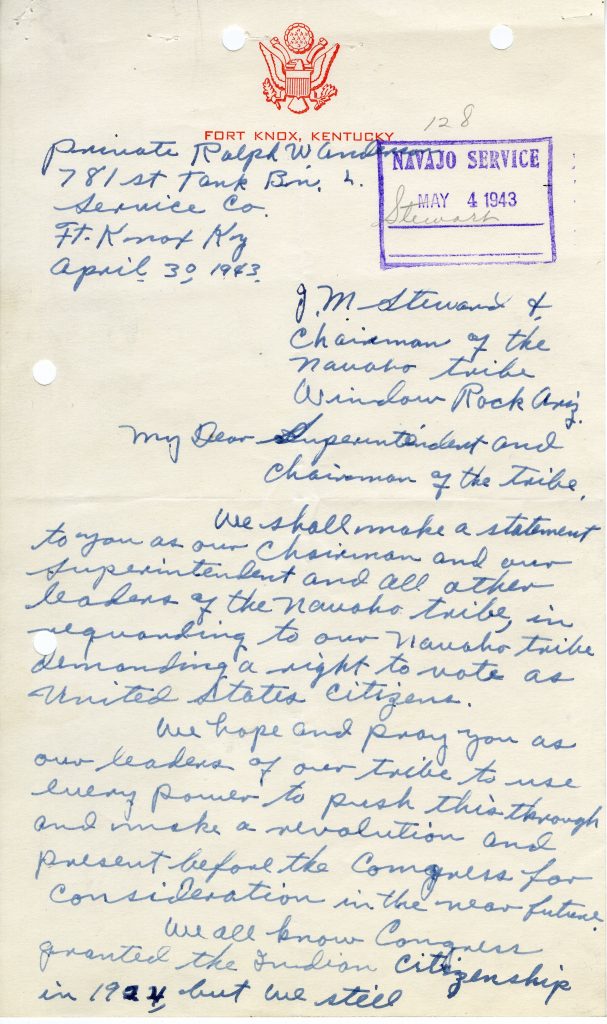 FORT KNOX, KENTUCKY
128
Private Ralph W Anderson
781st Tank Bn. L.
Service Co.
Ft. Knox Ky
April 30, 1943
NAVAJO SERVICE
MAY 4 1943
Stewart
J. M. Steward &
Chairman of the
Navaho tribe
Window Rock Ariz.
My Dear Superintendent and
Chairman of the tribe,
We shall make a statement
to you as our Chairman and our
Superintendent and all other
leaders of the Navaho tribe, in
reguarding to our Navaho tribe
demanding a right to vote as
United States Citizens.
We hope and pray you as
our leaders of our tribe to use
every power to push this through
and make a revolution and
present before the Congress for
consideration in the near future.
We all know Congress
granted the Indian Citizenship
in 1924 but we still